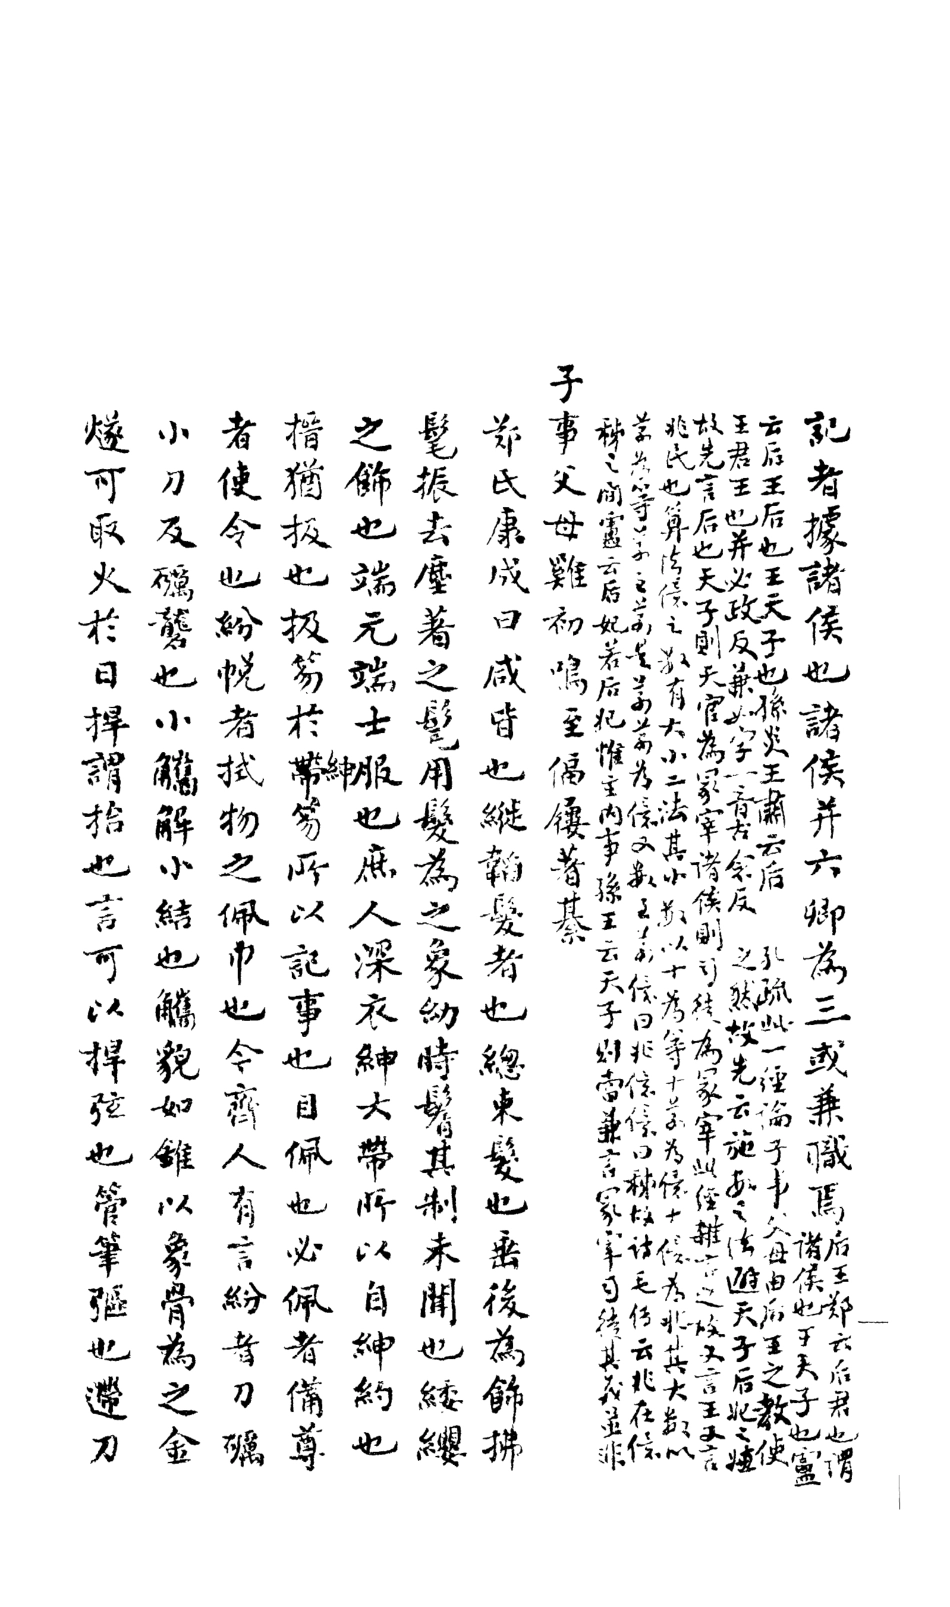 記者據諸侯也諸侯并六卿為三或兼職焉
后王鄭云后君也謂
諸侯也王天子也盧
云后王后也王天子也孫炎王肅云后
王君王也并必政反兼如字一音古念反
孔疏此一經論子事父母由后王之教使
之然故先云施教之法避天子后妃之嫌
故先言后也天子則天官為冢宰諸侯則司徒為冢宰此經雜言之故又言王又言
兆民也算法億之數有大小二法其小數以十為等十萬為億十億為兆其大數以
萬為等萬至萬是萬萬為億又數至萬億曰兆億億曰秭故詩毛傳云兆在億
秭之間盧云后妃若后妃惟主內事孫王云天子則當兼言冢宰司徒其義並非
子事父母雞初鳴至偪屨著綦
鄭氏康成曰咸皆也縰韜髮者也總束髮也垂後為飾拂
髦振去塵著之髦用髮為之象幼時鬌其制未聞也緌纓
之飾也端元端士服也庶人深衣紳大帶所以自紳約也
搢猶扱也扱笏於紳帶笏所以記事也目佩也必佩者備尊
者使令也紛帨者拭物之佩巾也今齊人有言紛者刀礪
小刀及礪礱也小觿解小結也觿貌如錐以象骨為之金
燧可取火於日捍謂拾也言可以捍弦也管筆彄也遰刀